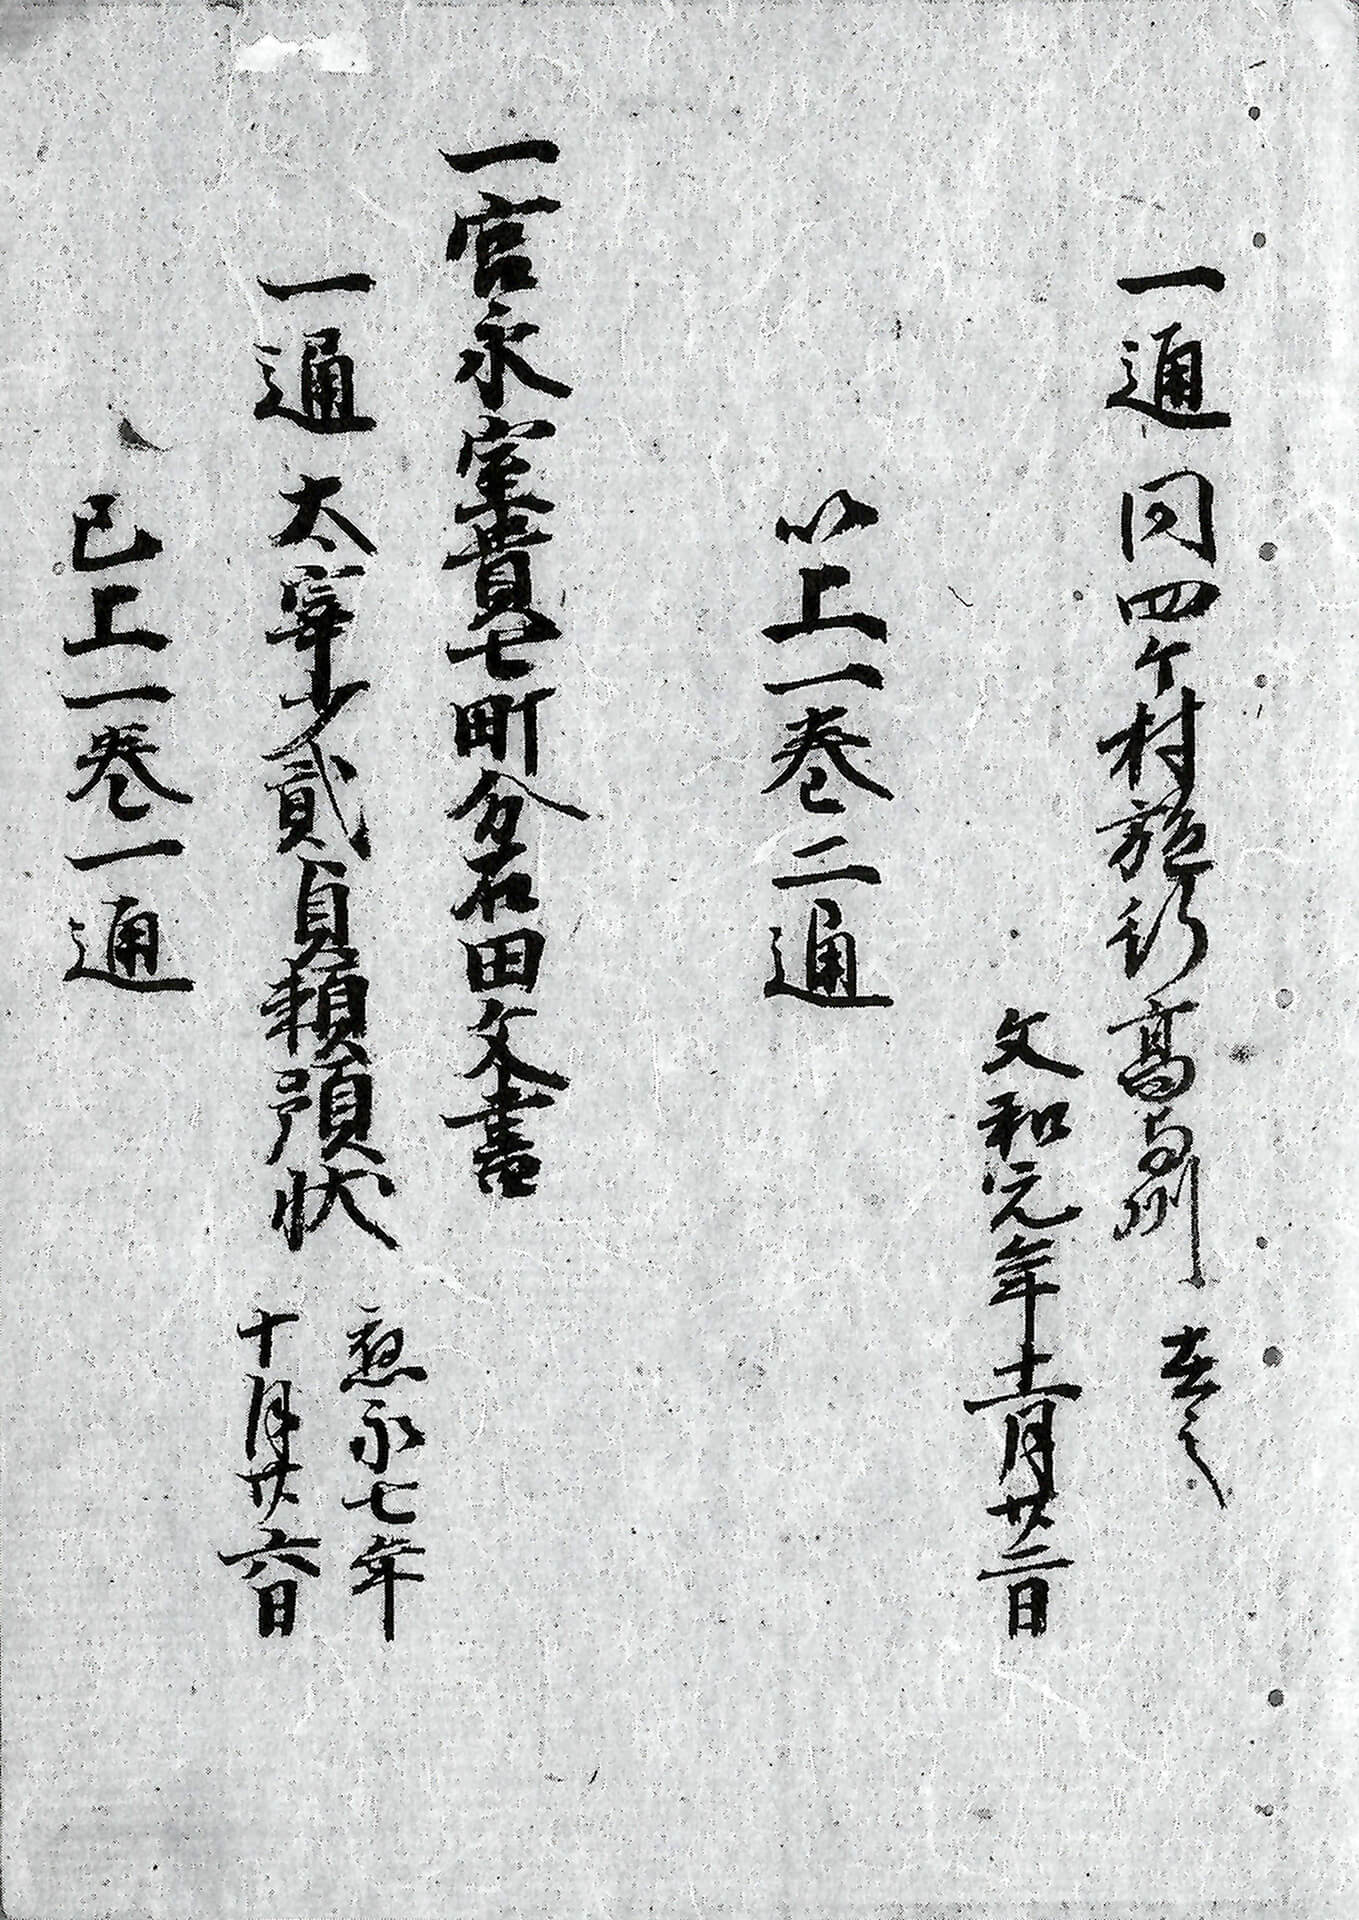 一通 同四ケ村施行 高哥州 在之
文和元年十一月廿二日
以上一巻二通
一宮永室貴七町分石田文書
一通 太宰少貳貞頼預状 應永七年
十月廿六日
已上一巻一通